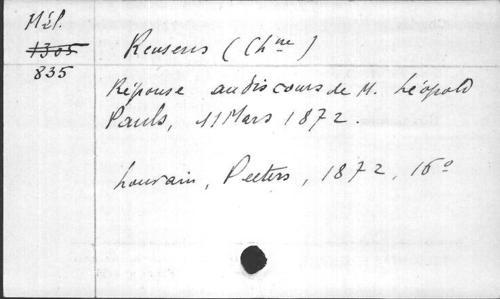 Mél.
1305
835
Reusens (Chne)
Réponse au discours de M. Léopold
Pauls, 11 Mars 1872.
Louvain, Peeters, 1872, 16°